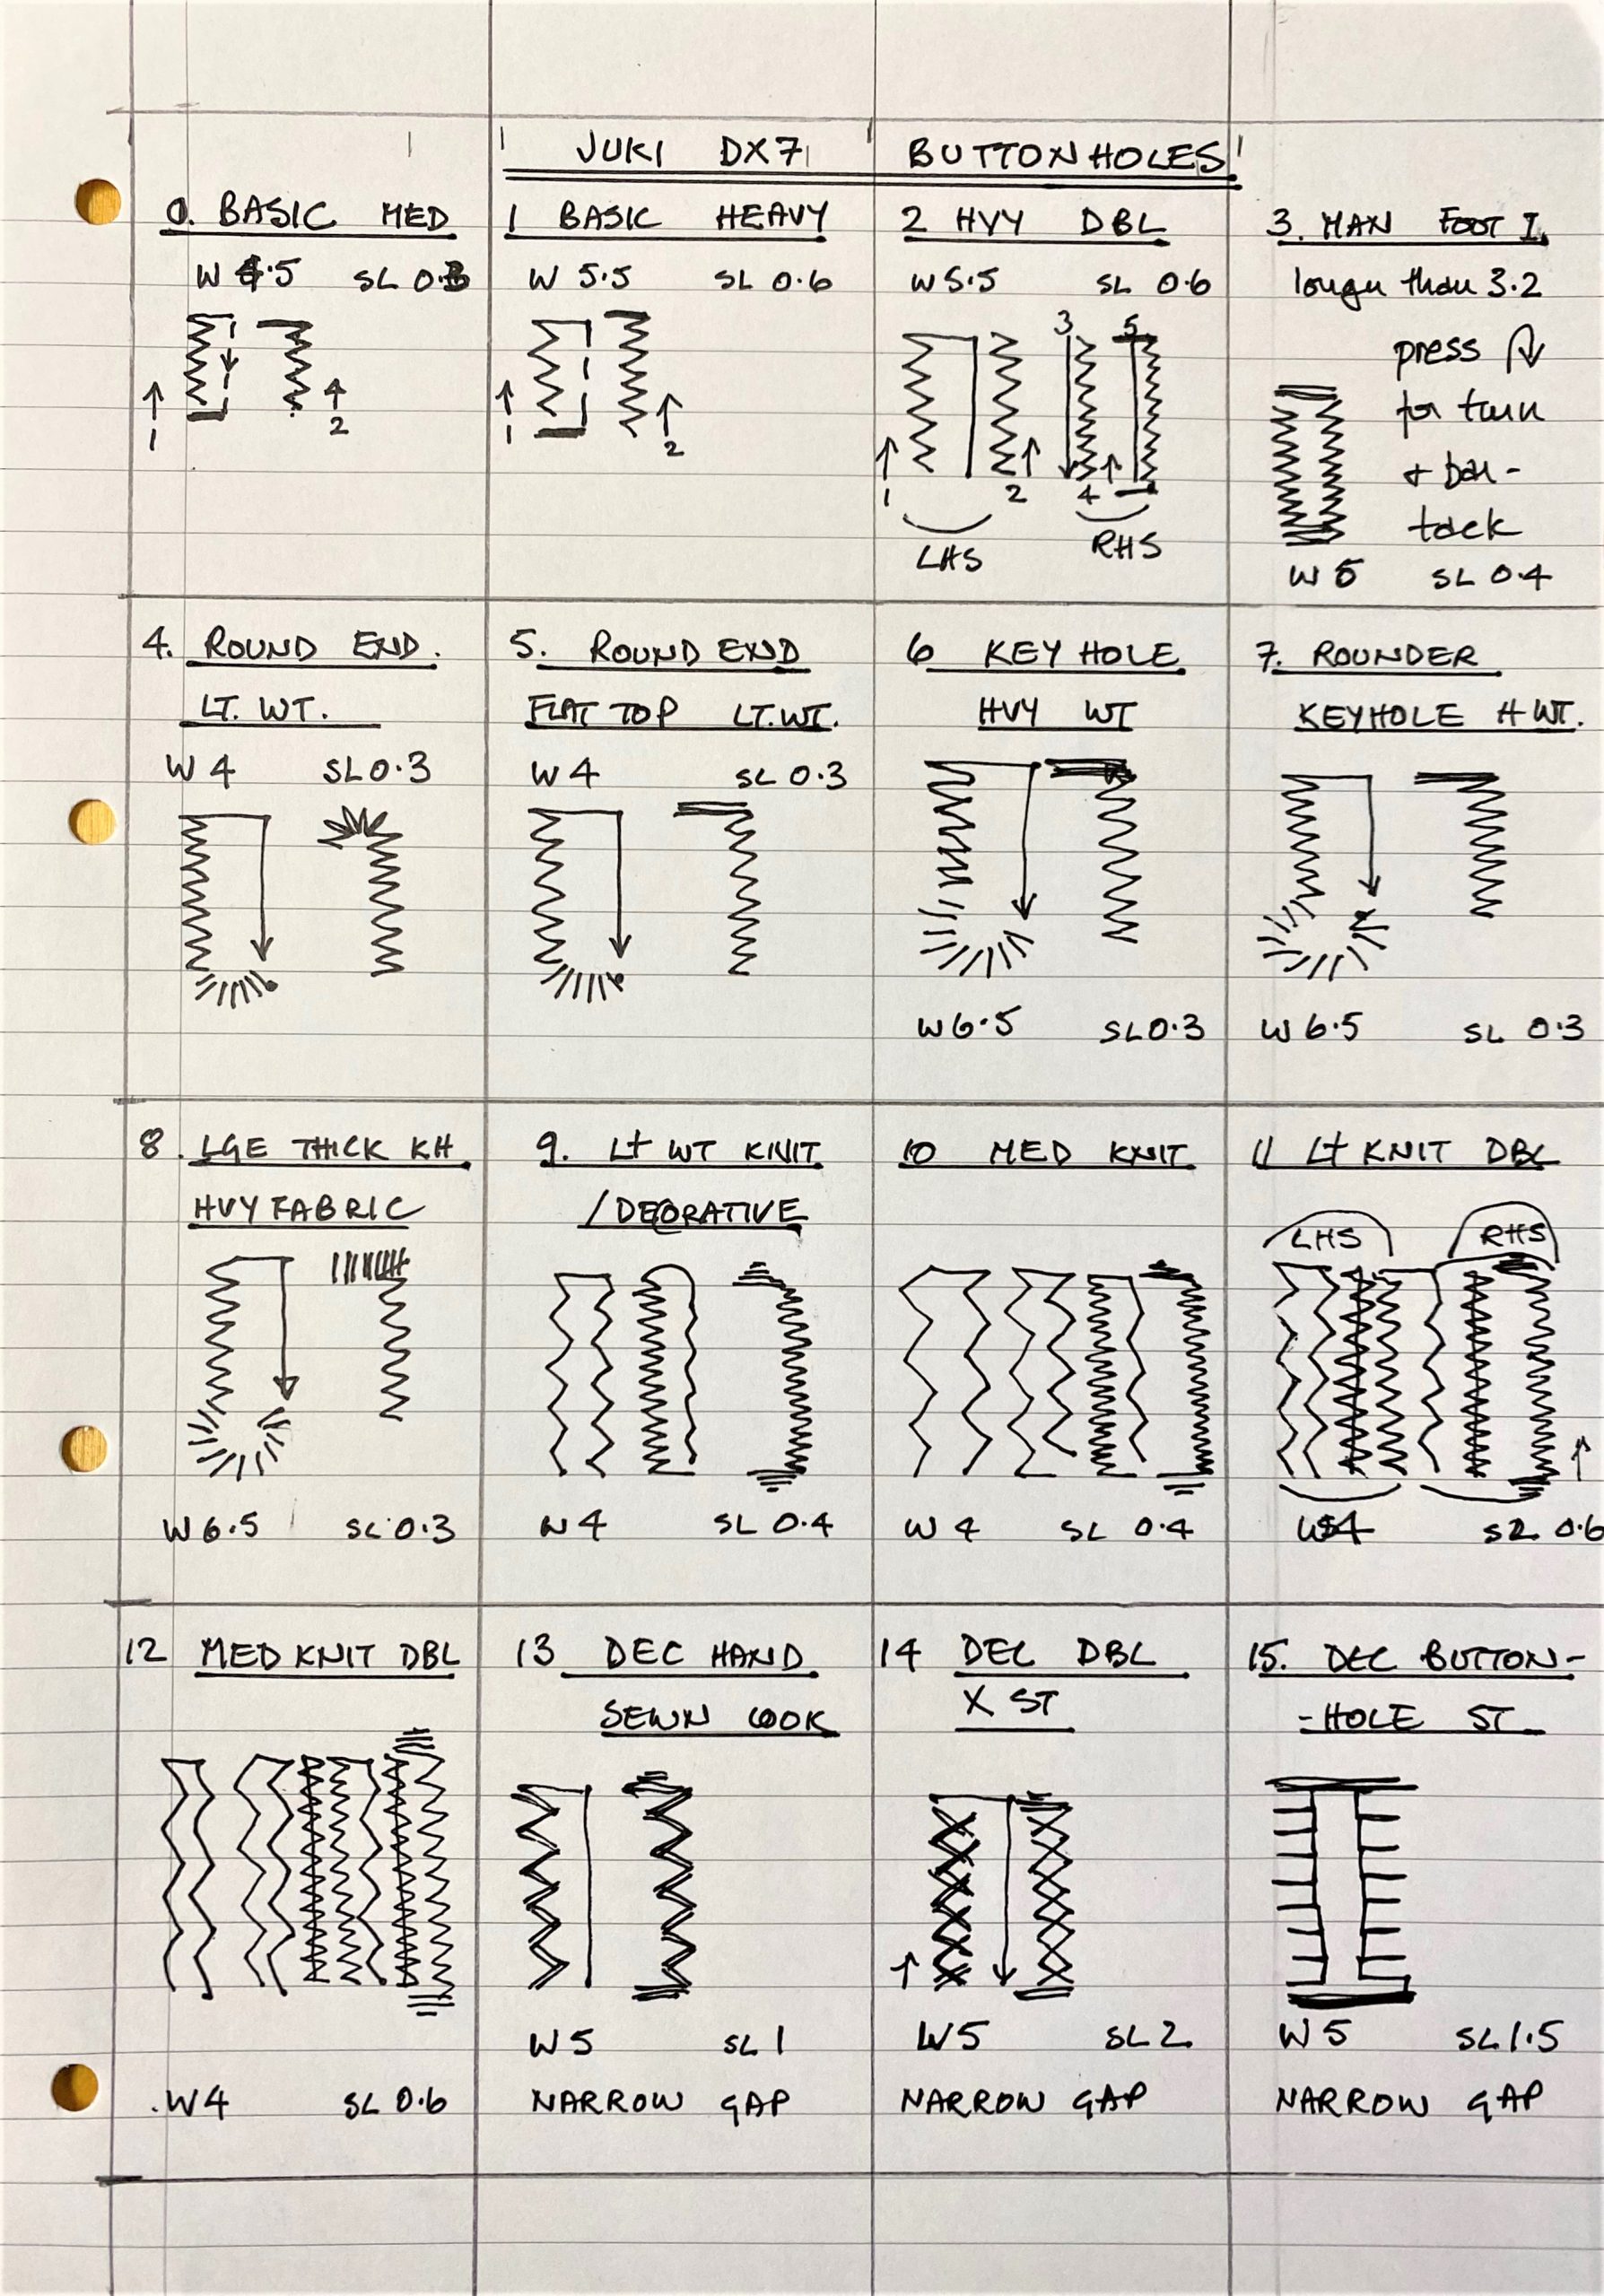 JUKI DX7 BUTTONHOLES
0. BASIC MED
W 4.5 SL 0.3
1
2
1 BASIC HEAVY
W 5.5 SL 0.6
1
2
2 HVY DBL
W 5.5 SL 0.6
3 5
1 2 4
LHS RHS
3. MAN FOOT I.
longer than 3.2
press
for turn
+ bar-
tack
W 5 SL 0.4
4. ROUND END.
LT. WT.
W 4 SL 0.3
5. ROUND END
FLAT TOP LT. WT.
W 4 SL 0.3
6 KEY HOLE
HVY WT
W 6.5 SL 0.3
7. ROUNDER
KEYHOLE H WT.
W 6.5 SL 0.3
8. LGE THICK KH
HVY FABRIC
W 6.5 SL 0.3
9. Lt WT KNIT
/DECORATIVE
W 4 SL 0.4
10 MED KNIT
W 4 SL 0.4
11 Lt KNIT DBL
LHS RHS
W 4 SL 0.6
12 MED KNIT DBL
W 4 SL 0.6
13 DEC HAND
SEWN LOOK
W 5 SL 1
NARROW GAP
14 DEC DBL
X ST
W 5 SL 2
NARROW GAP
15. DEC BUTTON-
-HOLE ST
W 5 SL 1.5
NARROW GAP